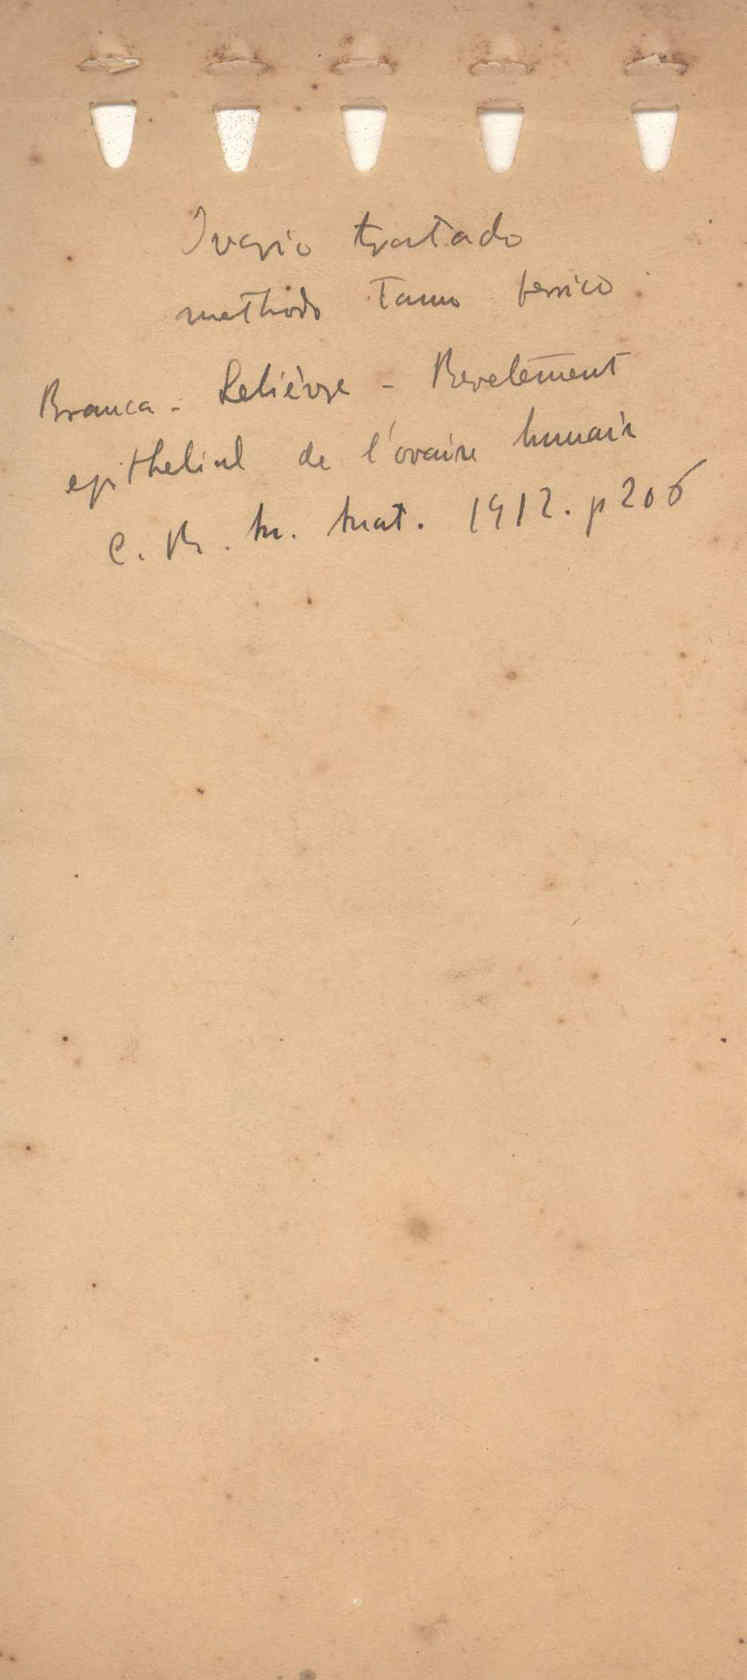 Ovario tratado
methodo Tanno ferrico
Branca - Lelièvre - Revetement
epithelial de l'ovaire humain
C. R. Anat. 1912. p 206